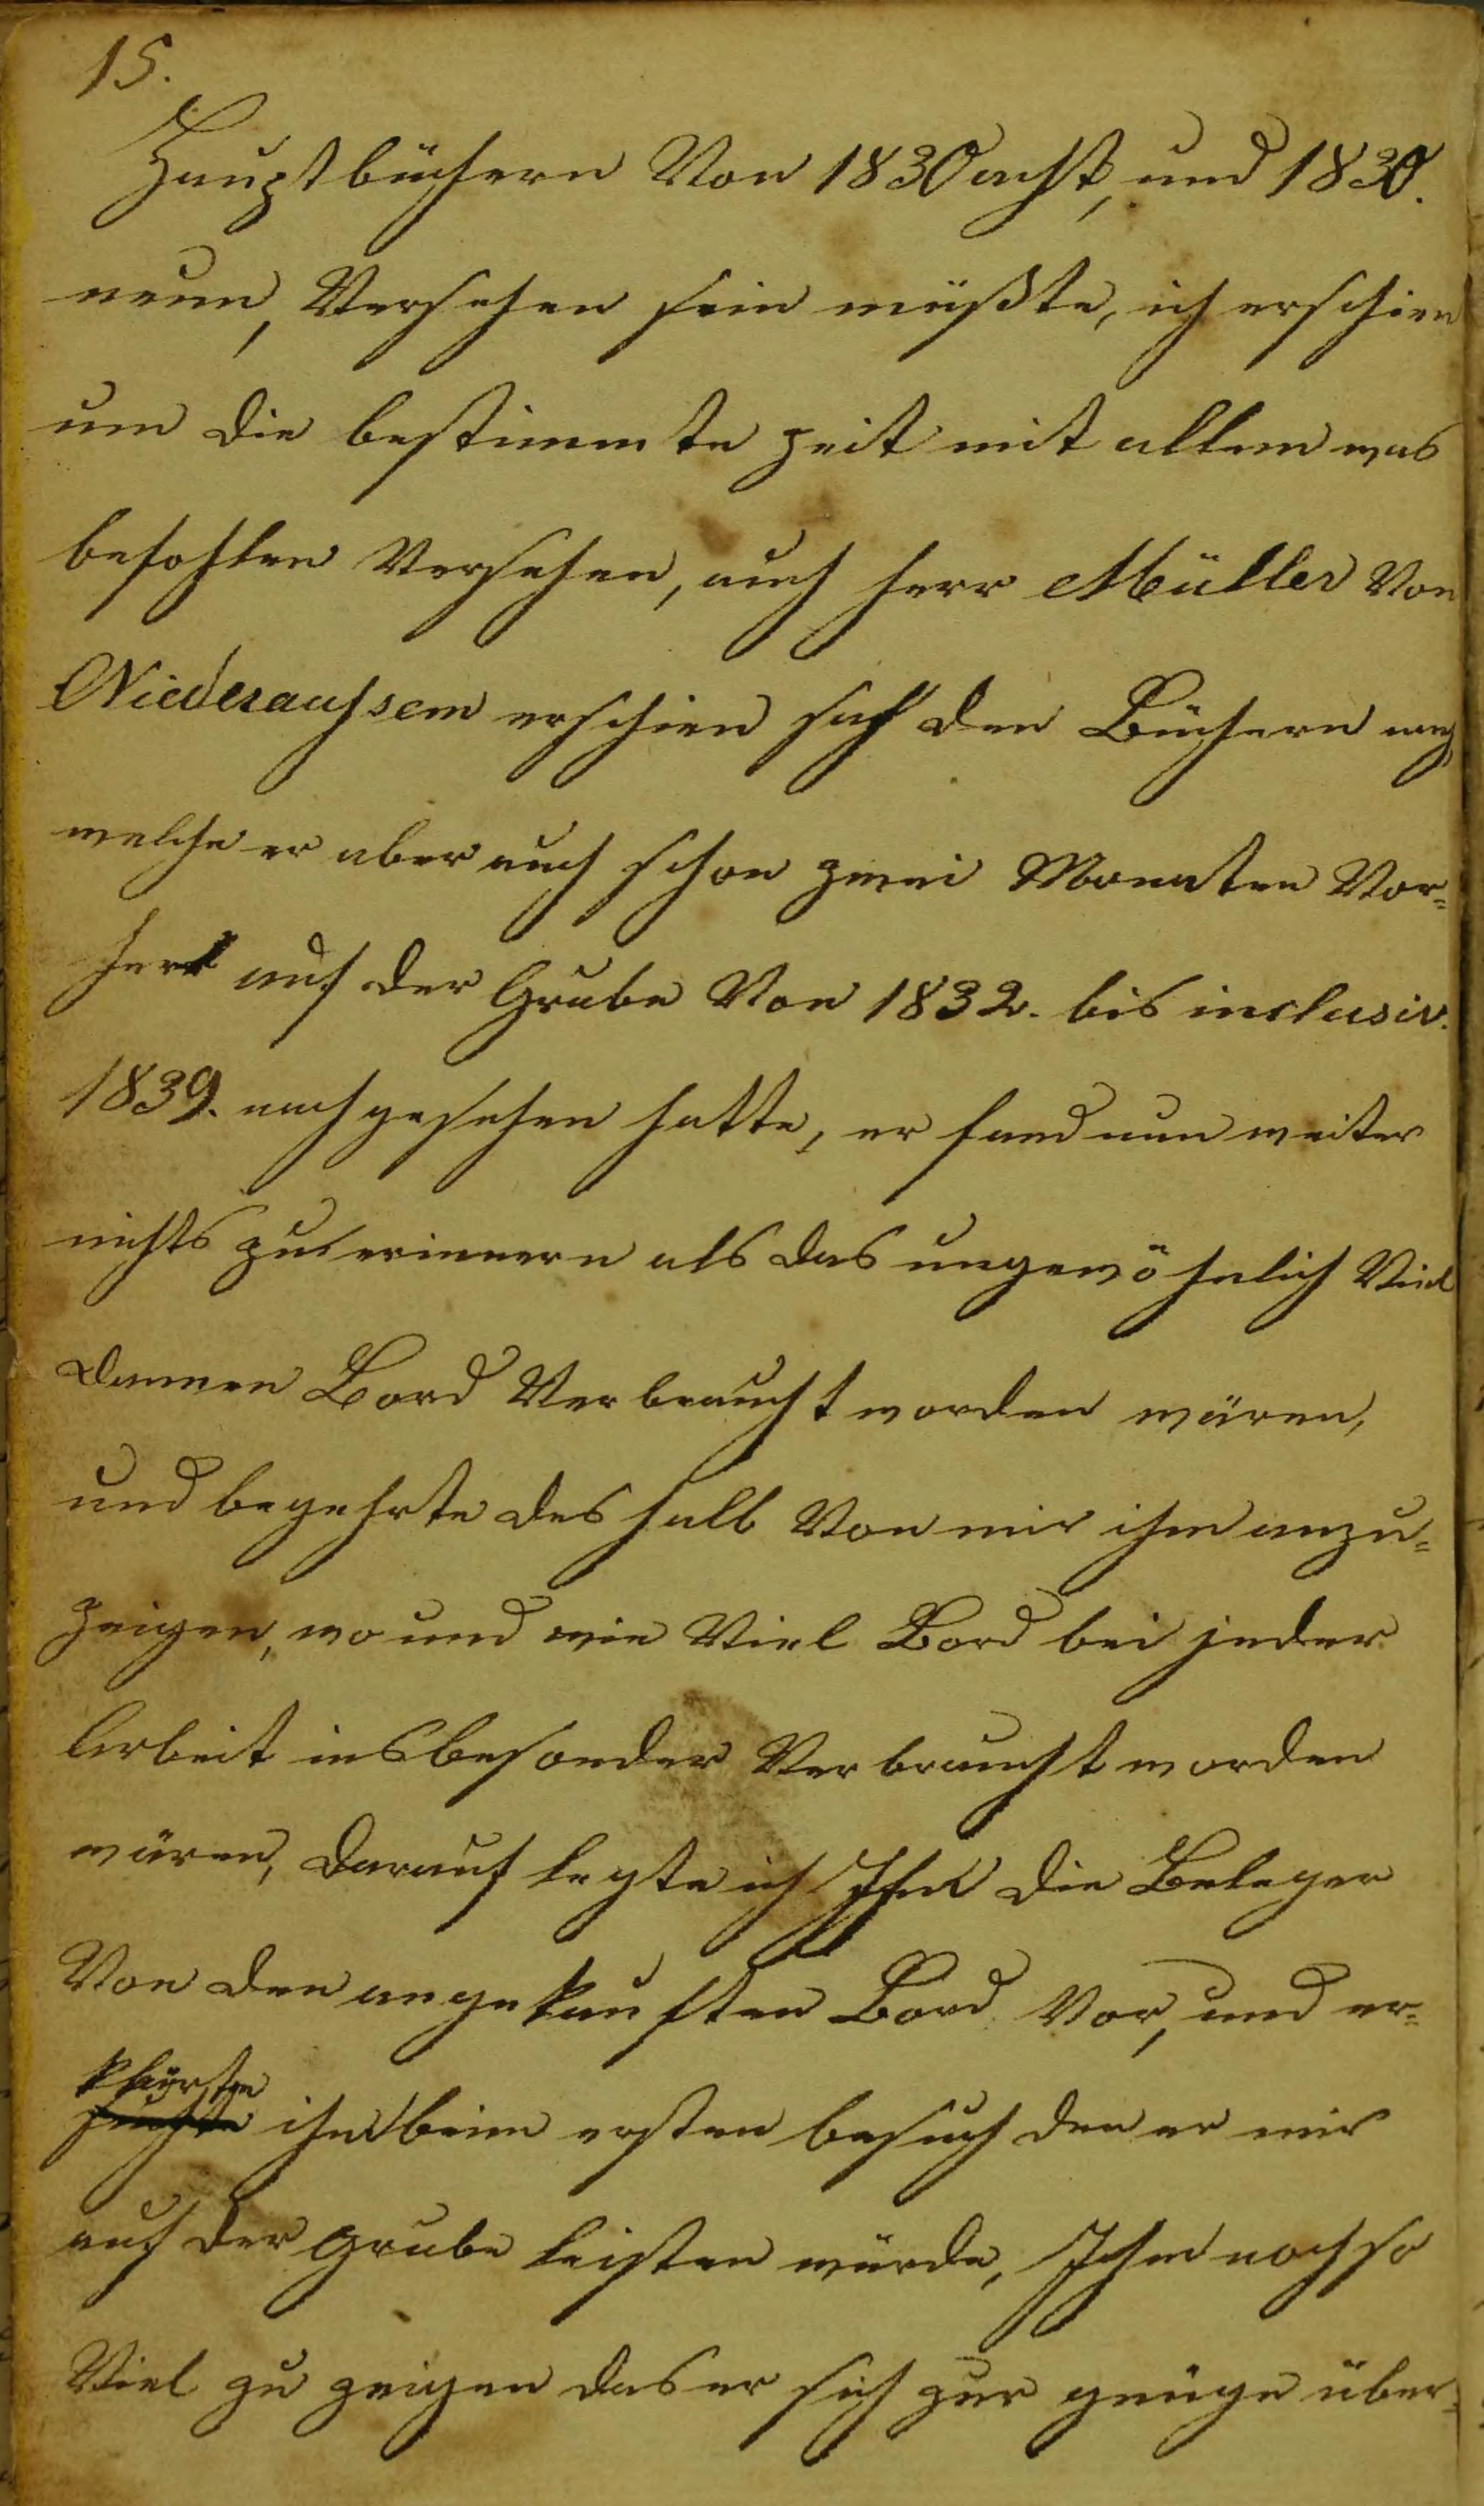 15.
Hauptbüchern Von 1830 acht, und 1830.
neun, Versehen sein müßte, ich erschien
um die bestimmte zeit mit allem was
befohlen Versehen, auch herr Müller Von
Niederaussem erschien sah den Büchern nach,
welche er aber auch schon zwei Monaten Vor=
her auf der Grube Von 1832. bis inclusiv.
1839. nachgesehen hatte, er fand nun weiter
nichts zu erinnern als das ungewöhnlich Viel
dannen Bord Verbraucht worden wären,
und begehrte deshalb Von mir ihm anzu=
zeigen, wo und wie Viel Bord bei jeder
Arbeit insbesonder Verbraucht worden
wären, darauf legte ich Ihm die Beleger
Von den angekauften Bord Vor, und er=
klärte ihm beim ersten besuch den er mir
auf der grube leisten würde, Ihm noch so
Viel zu zeigen das er sich zur genüge über=